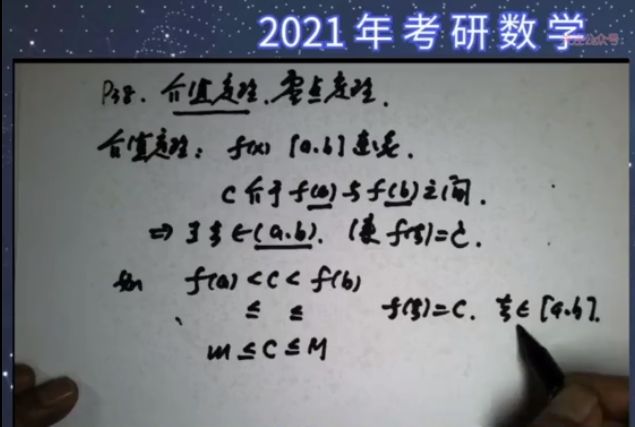 2021年考研数学
P38. 介值定理.零点定理.
介值定理: f(x) [a.b]连续.
C介于f(a)与f(b)之间.
⇒ ∃ξ∈(a.b). 使f(ξ)=C.
如 f(a)<C<f(b)
≤ ≤ f(ξ)=C. ξ∈[a.b].
m≤C≤M